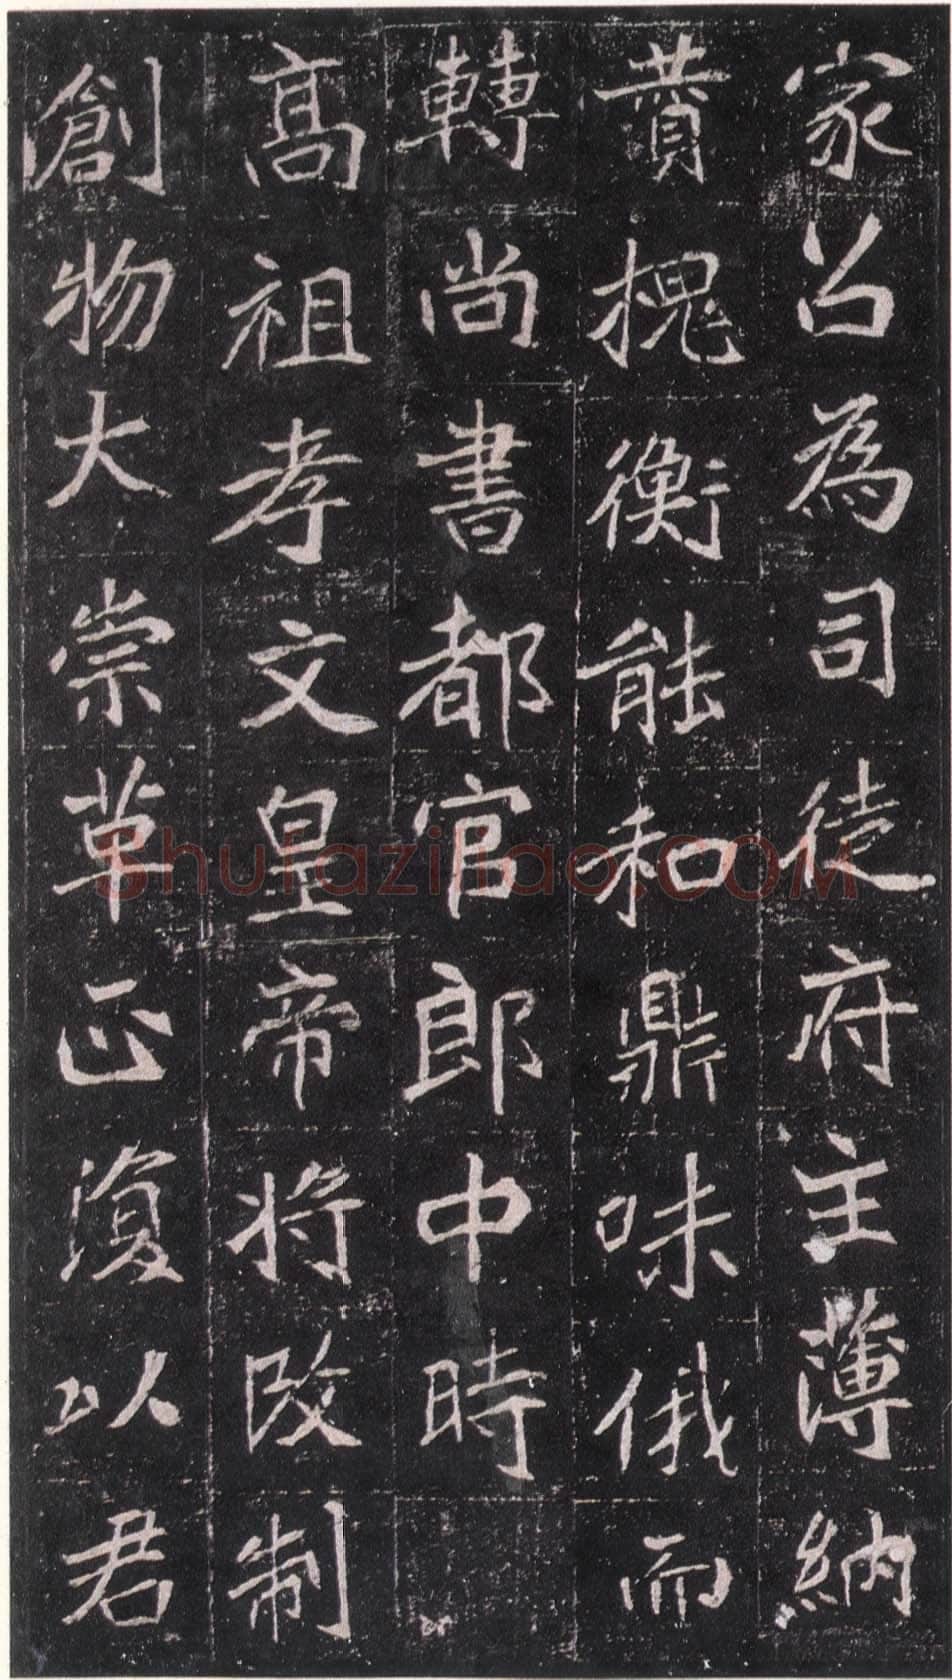 家召為司徒府主薄納
賛槐衡能和鼎味俄而
轉尚書都官郎中時
高祖孝文皇帝將改制
創物大崇革正復以君
Shufaziliao.COM